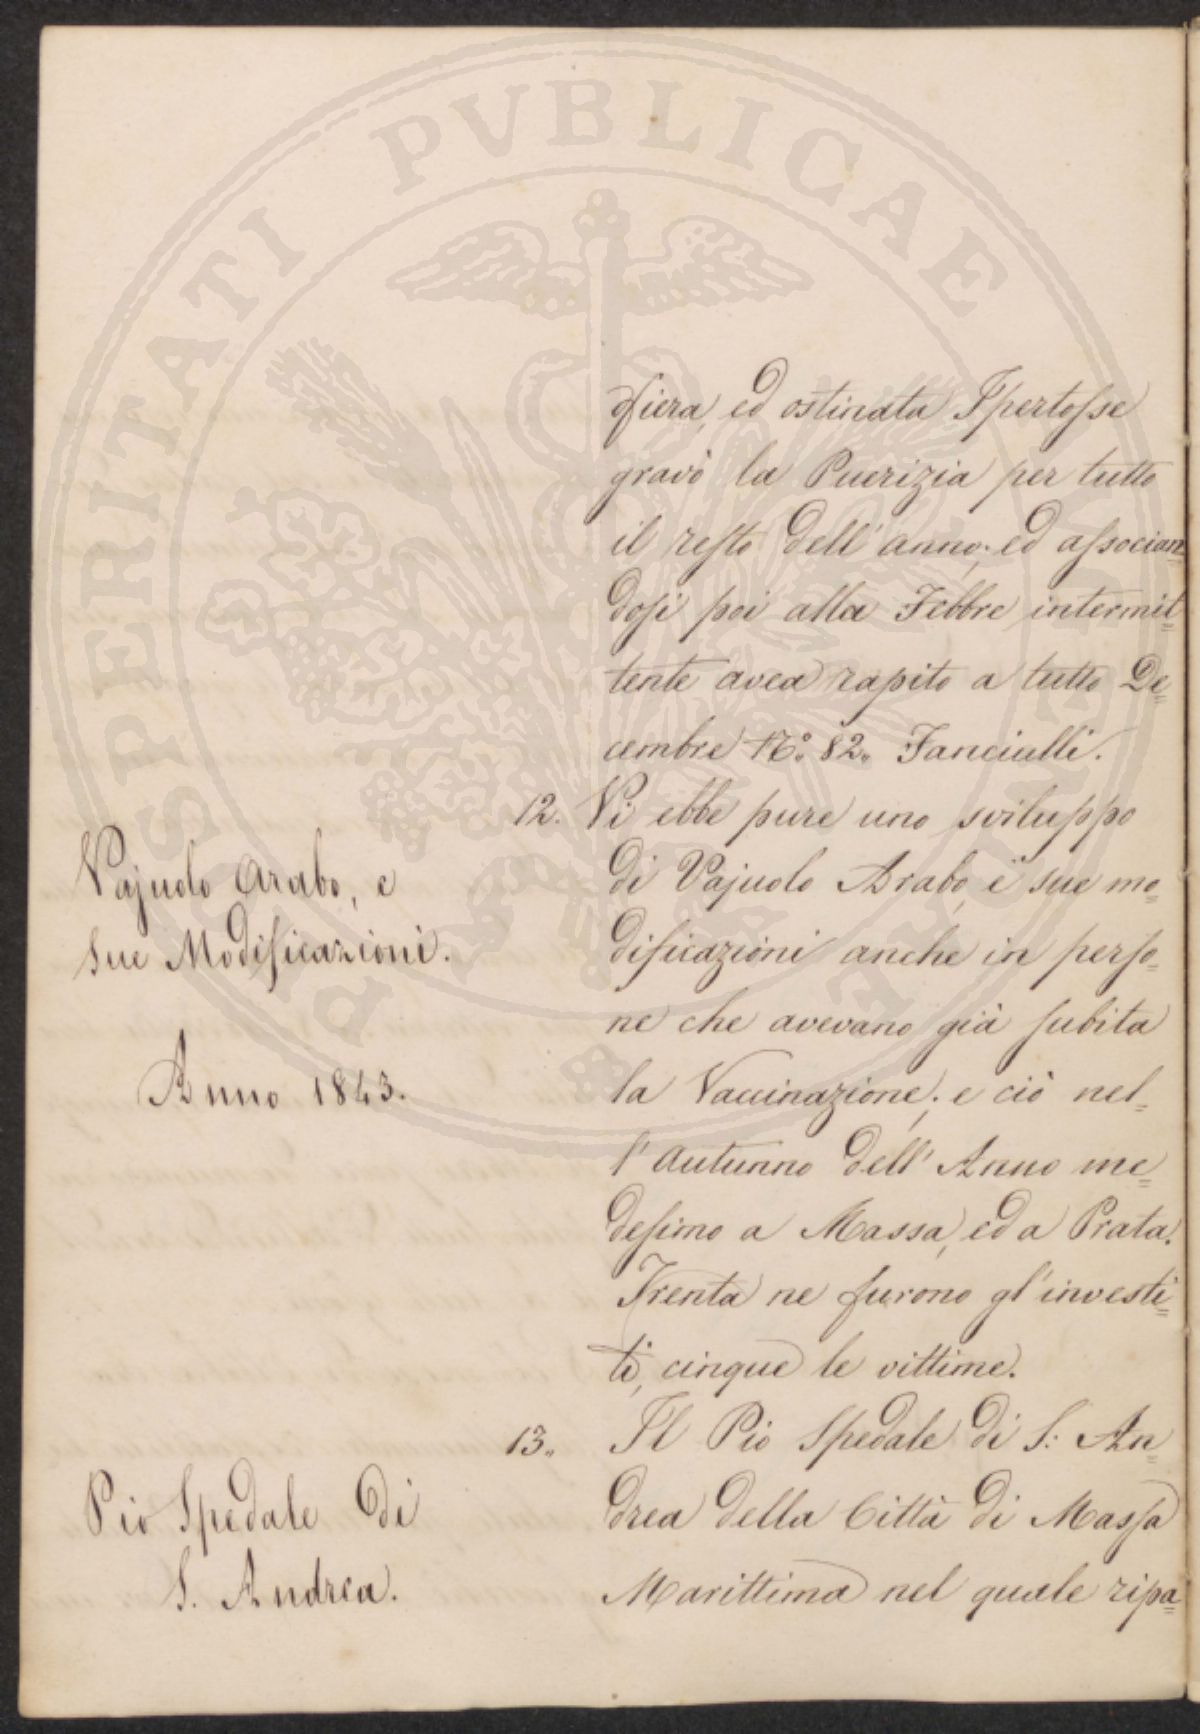 PROSPERITATI PVBLICAE
fiera, ed ostinata Ipertosse
gravò la Puerizia per tutto
il resto dell'anno; ed associan=
dosi poi alla Febbre intermit=
tente avea rapito a tutto De=
cembre N.º 82. Fanciulli.
12. Vi ebbe pure uno sviluppo
di Vajuolo Arabo, e sue mo=
dificazioni anche in perso=
ne che avevano già subita
la Vaccinazione; e ciò nel=
l'autunno dell'Anno me=
desimo a Massa, ed a Prata.
Trenta ne furono gl'investi=
ti, cinque le vittime.
Vajuolo Arabo, e
sue Modificazioni.
Anno 1843.
13. Il Pio Spedale di S: An=
drea della Città di Massa
Marittima nel quale ripa=
Pio Spedale di
S. Andrea.